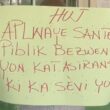 HUT
APLWAYE SANTE
PIBLIK BEZWEN
YON KATASIRANS
KI KA SÈVI YO